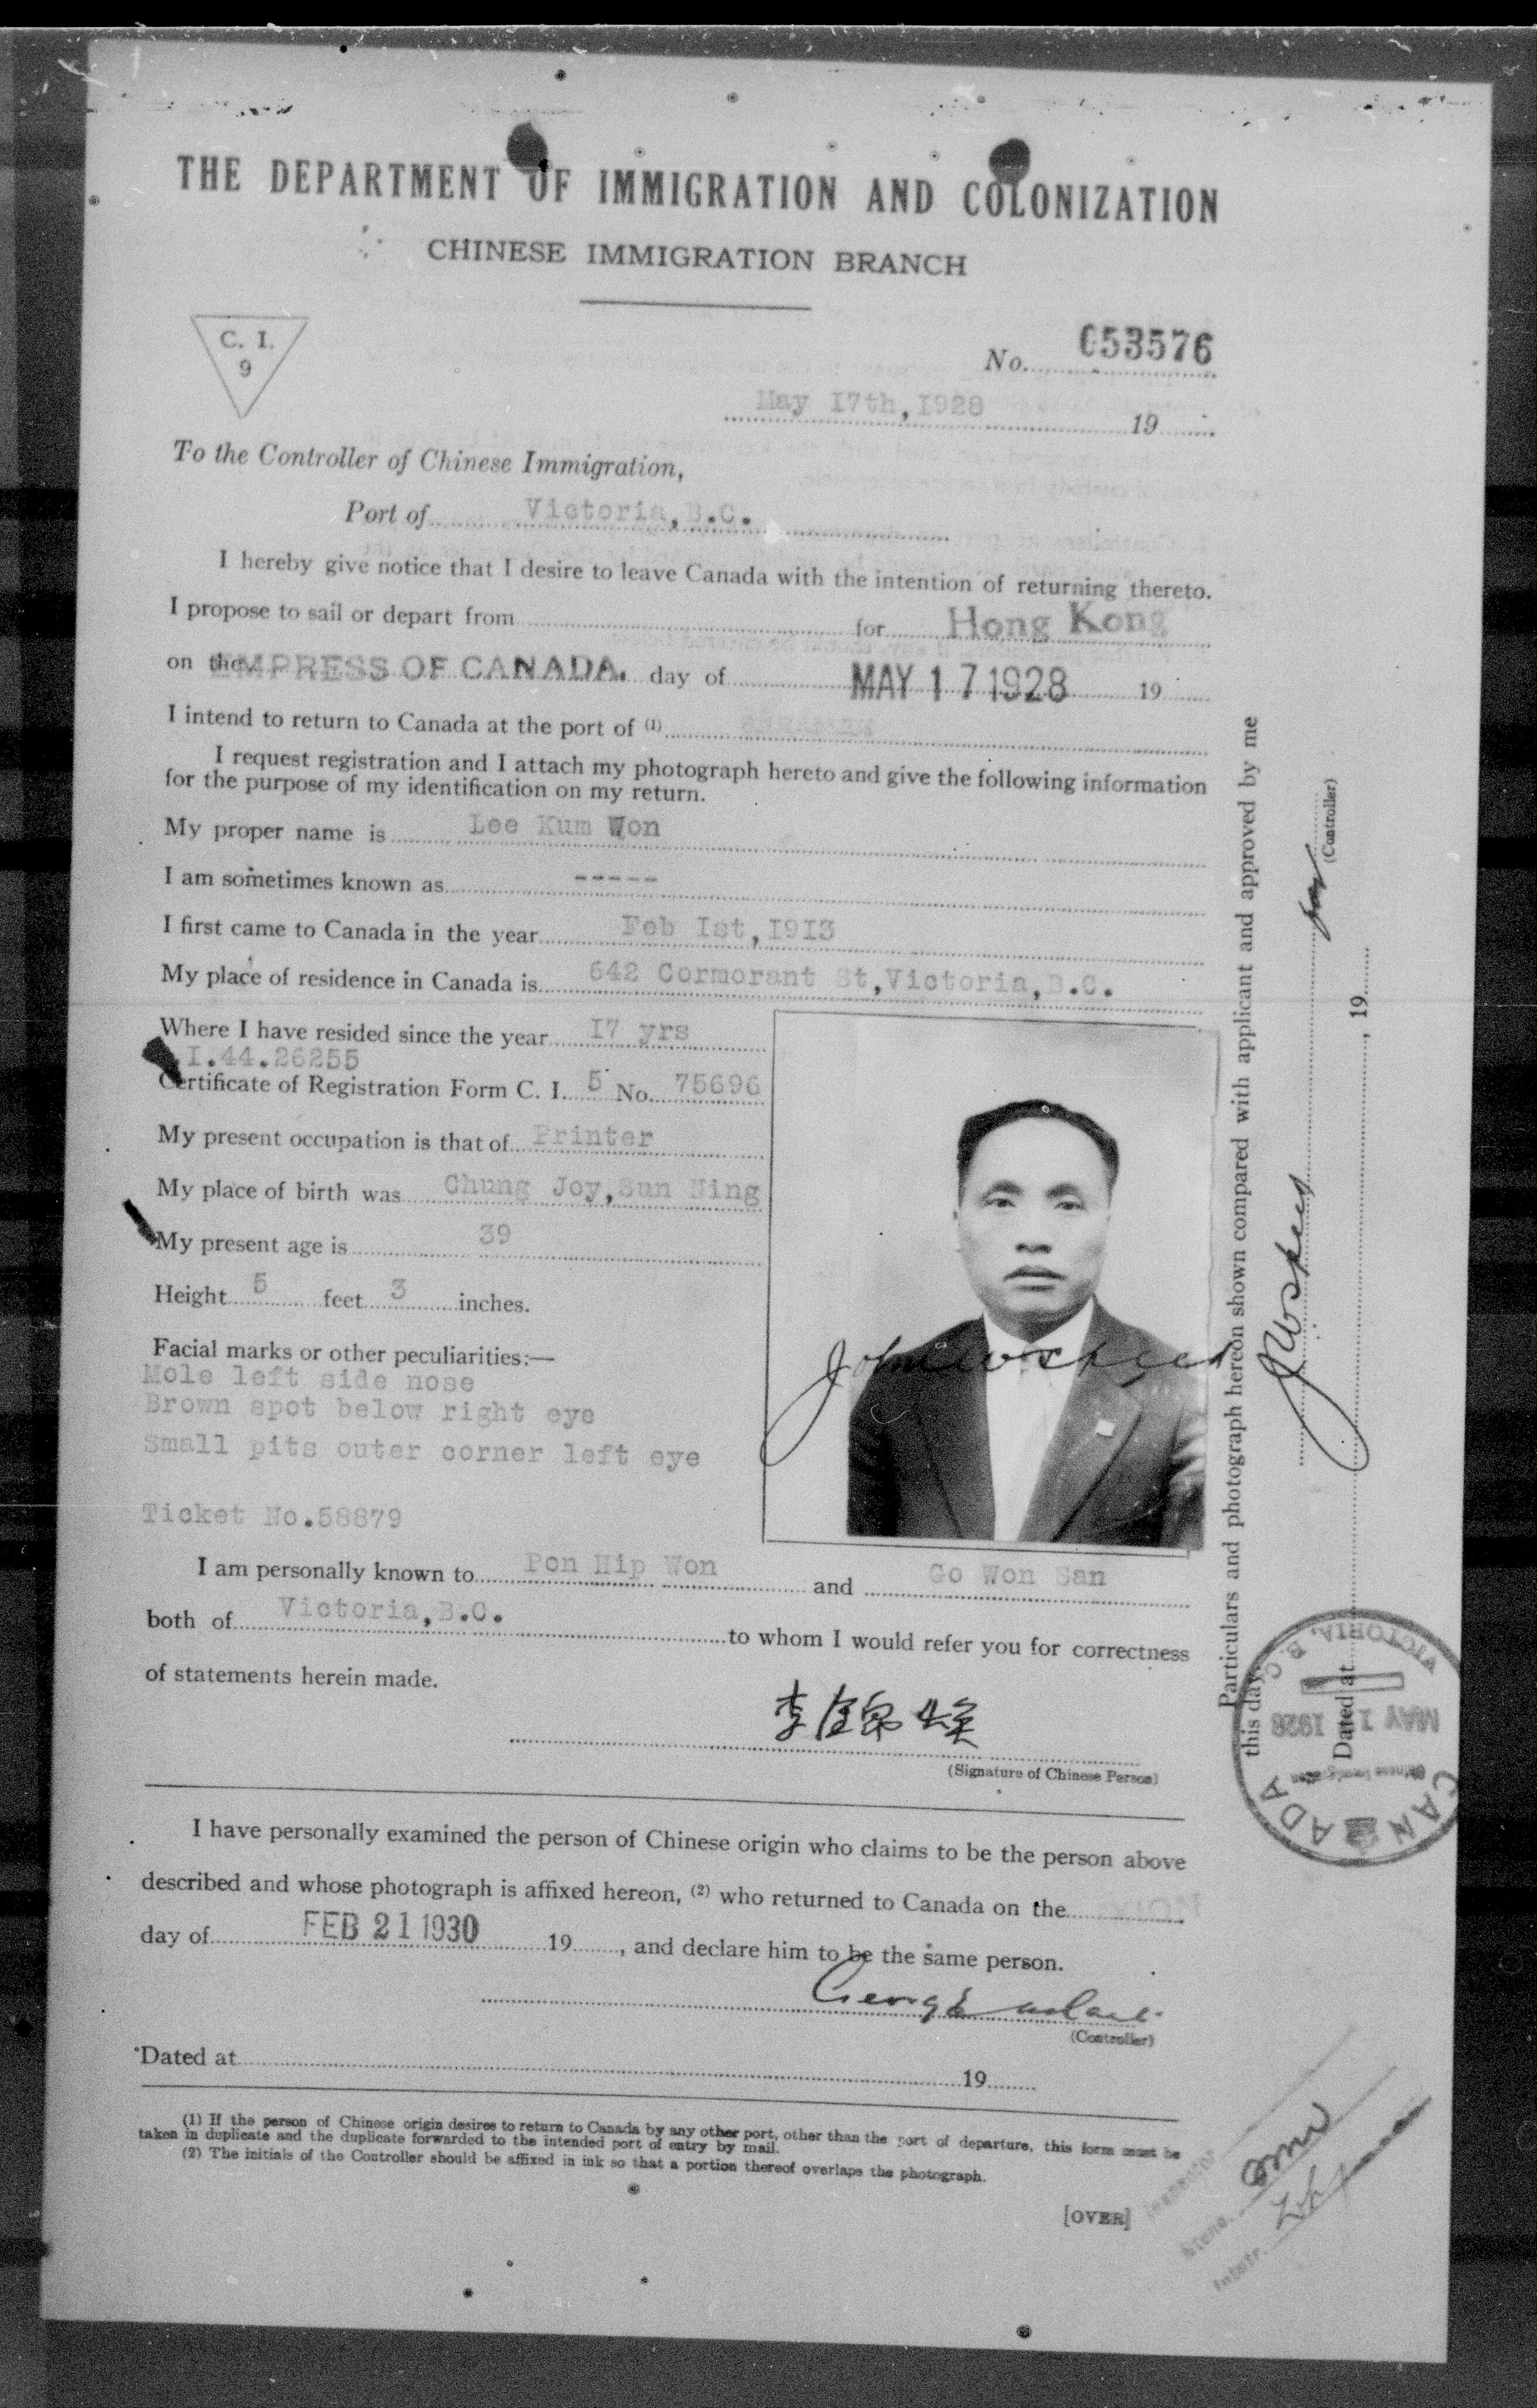 THE DEPARTMENT OF IMMIGRATION AND COLONIZATION
CHINESE IMMIGRATION BRANCH
C. I.
9
No. 053576
May 17th, 1928 19
To the Controller of Chinese Immigration,
Port of Victoria, B.C.
I hereby give notice that I desire to leave Canada with the intention of returning thereto.
I propose to sail or depart from for Hong Kong
on the EMPRESS OF CANADA. day of MAY 17 1928 19
I intend to return to Canada at the port of (1)
I request registration and I attach my photograph hereto and give the following information
for the purpose of my identification on my return.
My proper name is Lee Kum Won
I am sometimes known as -----
I first came to Canada in the year Feb 1st, 1913
My place of residence in Canada is 642 Cormorant St, Victoria, B.C.
Where I have resided since the year 17 yrs
I.44.26255
Certificate of Registration Form C. I. 5 No. 75696
My present occupation is that of Printer
My place of birth was Chung Joy, Sun Ning
My present age is 39
Height 5 feet 3 inches.
Facial marks or other peculiarities:—
Mole left side nose
Brown spot below right eye
Small pits outer corner left eye
Ticket No. 58879
I am personally known to Pon Hip Won and Go Won San
both of Victoria, B.C. to whom I would refer you for correctness
of statements herein made.
李
(Signature of Chinese Person)
I have personally examined the person of Chinese origin who claims to be the person above
described and whose photograph is affixed hereon, (2) who returned to Canada on the
day of FEB 21 1930 19 , and declare him to be the same person.
(Controller)
Dated at 19
(1) If the person of Chinese origin desires to return to Canada by any other port, other than the port of departure, this form must be
taken in duplicate and the duplicate forwarded to the intended port of entry by mail.
(2) The initials of the Controller should be affixed in ink so that a portion thereof overlaps the photograph.
[OVER]
Inspector
Steno.
Intptr.
Particulars and photograph hereon shown compared with applicant and approved by me
this day
(Controller)
Dated at , 19
VICTORIA, B.C.
MAY 1 1928
Chinese Immigration
CANADA